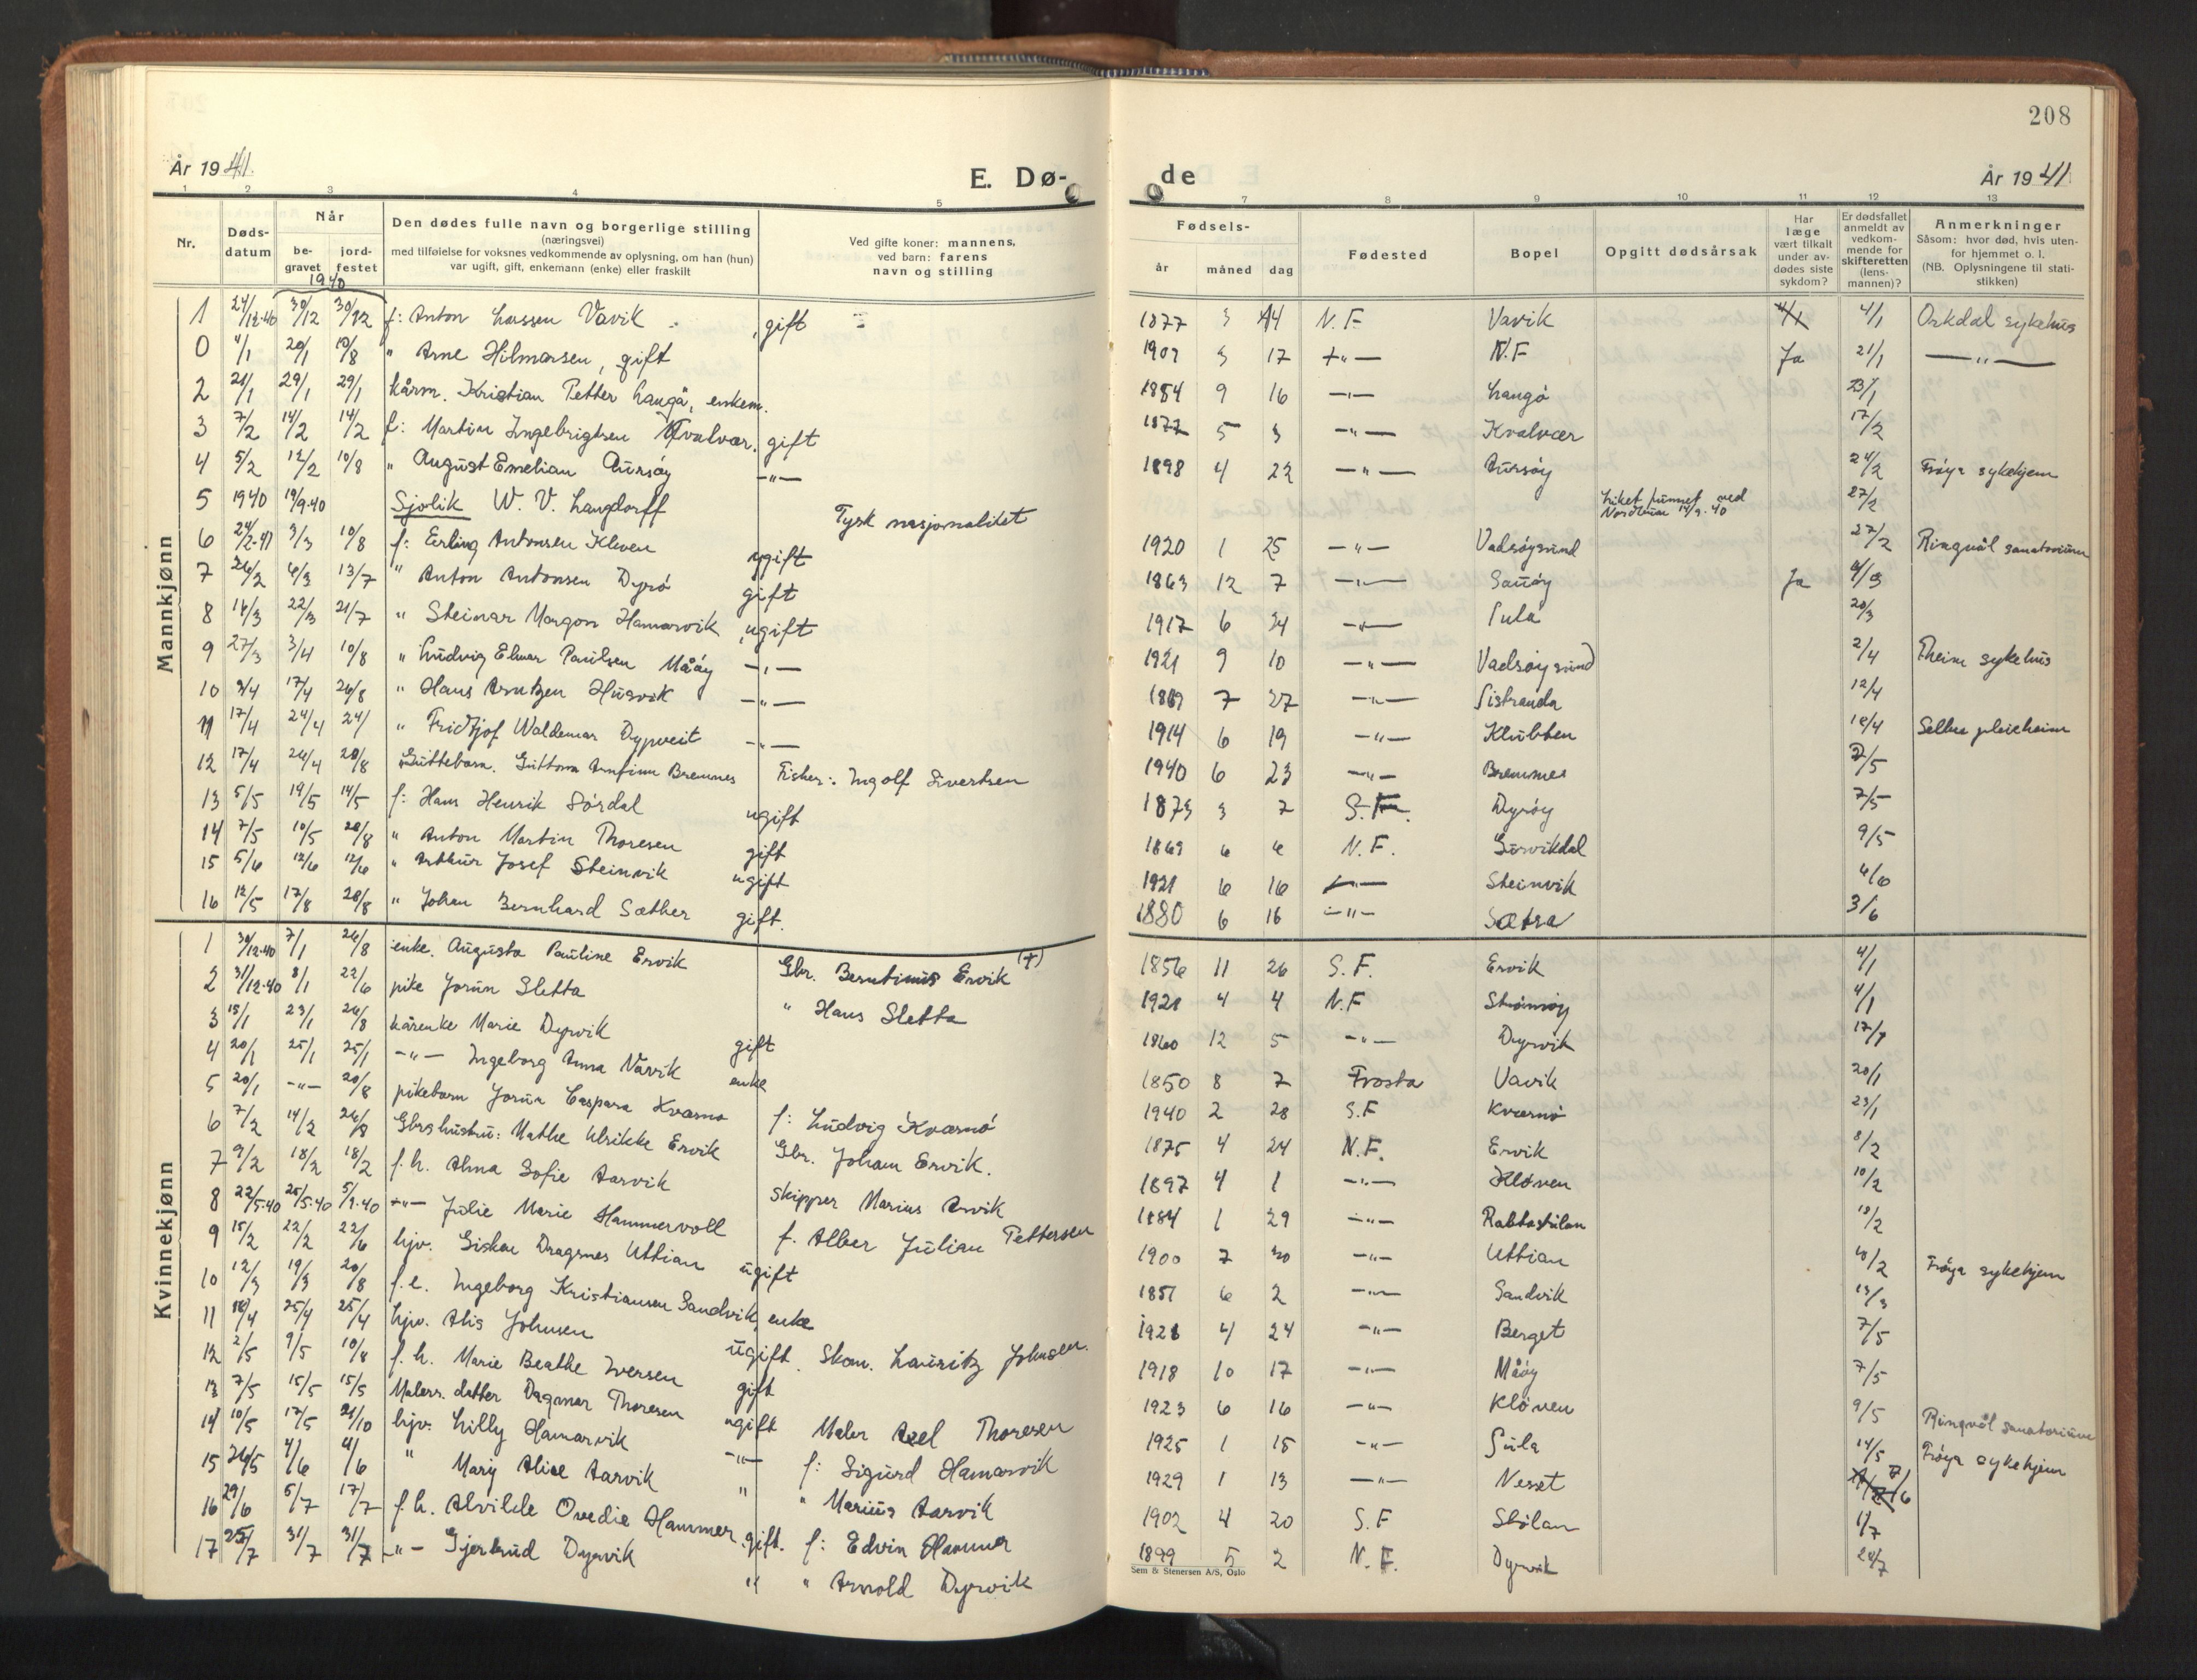 208
År 1941.
E. Dø-
de
År 1941
1 2 3 4 5 7 8 9 10 11 12 13
Nr.
Døds-
datum
Når
be-
gravet
jord-
festet
1940
Den dødes fulle navn og borgerlige stilling
(næringsvei)
med tilføielse for voksnes vedkommende av oplysning, om han (hun)
var ugift, gift, enkemann (enke) eller fraskilt
Ved gifte koner: mannens,
ved barn: farens
navn og stilling
Fødsels-
år måned dag
Fødested
Bopel
Opgitt dødsårsak
Har
læge
vært tilkalt
under av-
dødes siste
sykdom?
Er dødsfallet
anmeldt av
vedkom-
mende for
skifteretten
(lens-
mannen)?
Anmerkninger
Såsom: hvor død, hvis uten-
for hjemmet o. l.
(NB. Oplysningene til stati-
stikken)
Mannkjønn
1 24/12-40 30/12 30/12 f: Anton Larssen Vavik, gift 1877 3 14 N.F. Vavik 4/1 Orkdal sykehus
0 4/1 20/1 10/8 " Arne Hilmarsen, gift 1907 3 17 -"- N.F Ja 21/1 -"-
2 21/1 29/1 29/1 kårm. Kristian Petter Langø, enkem. 1854 9 16 -"- Langö 23/1
3 7/2 14/2 14/2 f: Martin Ingebrigtsen Kvalvær. gift 1877 5 3 -"- Kvalvær 17/2
4 5/2 12/2 10/8 " August Emelian Aursøy -"- 1898 4 22 -"- Aursøy 24/2 Frøya sykehjem
5 1940 19/9-40 Sjølik W. V. Langdorff Tysk nasjonalitet Liket funnet ved
Nordbuen 14/9-40 27/2
6 24/2-41 3/3 10/8 f: Erling Antonsen Kleven ugift 1920 1 25 -"- Vadsøysund 27/2 Ringvål sanatorium
7 26/2 6/3 13/7 " Anton Antonsen Dyrø gift 1863 12 7 -"- Sauøy Ja 4/3
8 14/3 22/3 21/7 " Steinar Margon Hamarvik, ugift 1917 6 24 -"- Sula 20/3
9 27/3 3/4 10/8 " Ludvig Elmar Paulsen Måøy -"- 1921 9 10 -"- Vadsøysund 2/4 Theim sykehus
10 9/4 17/4 26/8 " Hans Arntzen Husvik -"- 1869 7 27 -"- Sistranda 12/4
11 17/4 24/4 24/ " Fridtjof Waldemar Dypveit -"- 1914 6 19 -"- Klubben 18/4 Selbu pleieheim
12 17/4 26/4 28/8 Guttebarn. Guttorm Arnfinn Bremnes Fisker: Ingolf Sivertsen 1940 6 23 -"- Bremnes 2/5
13 5/5 19/5 14/5 f: Hans Henrik Sørdal ugift 1873 3 7 S.F. Dyrøy 7/5
14 7/5 10/5 28/8 " Anton Martin Thoresen gift 1869 6 6 N.F. Gurvikdal 9/5
15 5/6 12/6 12/6 " Arthur Josef Steinvik ugift 1921 6 16 -"- Steinvik 4/6
16 12/5 17/8 28/8 " Johan Bernhard Sæther gift. 1880 6 16 -"- Sætra 3/6
Kvinnekjønn
1 30/12-40 7/1 26/8 enke. Augusta Pauline Ervik Gbr. Berntinus Ervik (+) 1856 11 26 S.F. Ervik 4/1
2 31/12-40 8/1 22/6 pike Jorun Sletta " Hans Sletta 1921 4 4 N.F Strømøy 4/1
3 15/1 23/1 26/8 kårenke Marie Dyrvik gift 1860 12 5 -"- Dyrvik 17/1
4 20/1 25/1 25/1 -"- Ingeborg Anna Vavik enke 1850 8 7 Frosta Vavik 20/1
5 20/1 -"- 20/8 pikebarn Jorun Caspara Kværnø f: Ludvig Kværnö 1940 2 28 S.F Kværnö 23/1
6 7/2 14/2 26/8 Gbrs hustru: Mathe Ulrikke Ervik Gbr. Johan Ervik. 1875 4 24 N.F. Ervik 8/2
7 9/2 18/2 18/2 f.h. Alma Sofie Aarvik Skipper Marius Arvik 1897 4 1 -"- Kløven 10/2
8 22/5-40 25/5-40 5/9-40 -"- Julie Marie Hammervoll f. Alber Julian Pettersen 1884 1 29 -"- Rabbastulan 18/2
9 15/2 22/2 22/6 hjv. Gisken Dragsnes Uttian ugift 1900 7 30 -"- Uttian 18/2 Frøya sykehjem
10 12/3 19/3 20/8 f.e. Ingeborg Kristiansen Sandvik, enke 1851 6 2 -"- Sandvik 13/3
11 18/4 25/4 25/4 hjv. Alis Johnsen ugift. Skom. Lauritz Johnsen. 1921 4 24 -"- Berget 7/5
12 2/5 9/5 10/8 f.h. Marie Beathe Iversen gift 1918 10 17 -"- Måøy 7/5
13 7/5 15/5 15/5 Malers. datter Dagmar Thoresen ugift Maler Axel Thoresen 1923 6 16 -"- Kløven 9/5 Ringvål sanatorium
14 10/5 17/5 21/10 hjv. Lilly Hamarvik -"- f: Sigurd Hamarvik 1925 1 15 -"- Sula 14/5 Frøya sykehjem
15 26/5 4/6 4/6 " Mary Alice Aarvik " " Marius Aarvik 1929 1 13 -"- Nesset 7/6
16 29/6 5/7 17/7 f.h. Alvilde Ovedie Hammer. gift. f: Edvin Hammer 1902 4 20 S.F Stølan 1/7
17 25/7 31/7 31/7 -"- Gjertrud Dyrvik " " Arnold Dyrvik 1899 5 2 N.F. Dyrvik 28/7
Sem & Stenersen A/S, Oslo